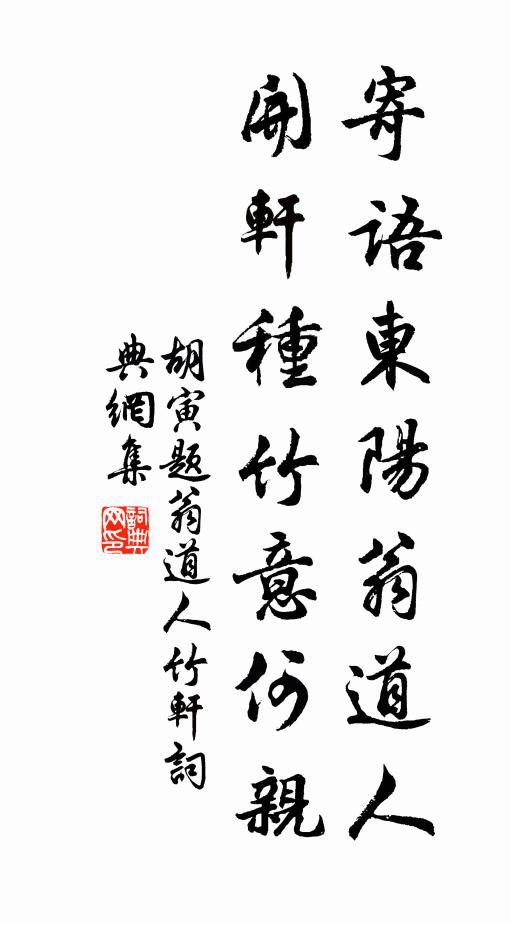 寄語東陽翁道人
開軒種竹意何親
胡寅題翁道人竹軒詞
典網集
詞典網印